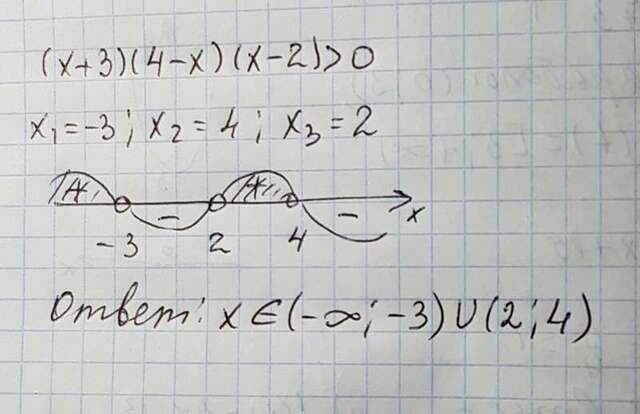 (x+3)(4-x)(x-2)>0
x₁=-3; x₂=4; x₃=2
+ - + - x
-3 2 4
Ответ: x∈(-∞;-3)∪(2;4)